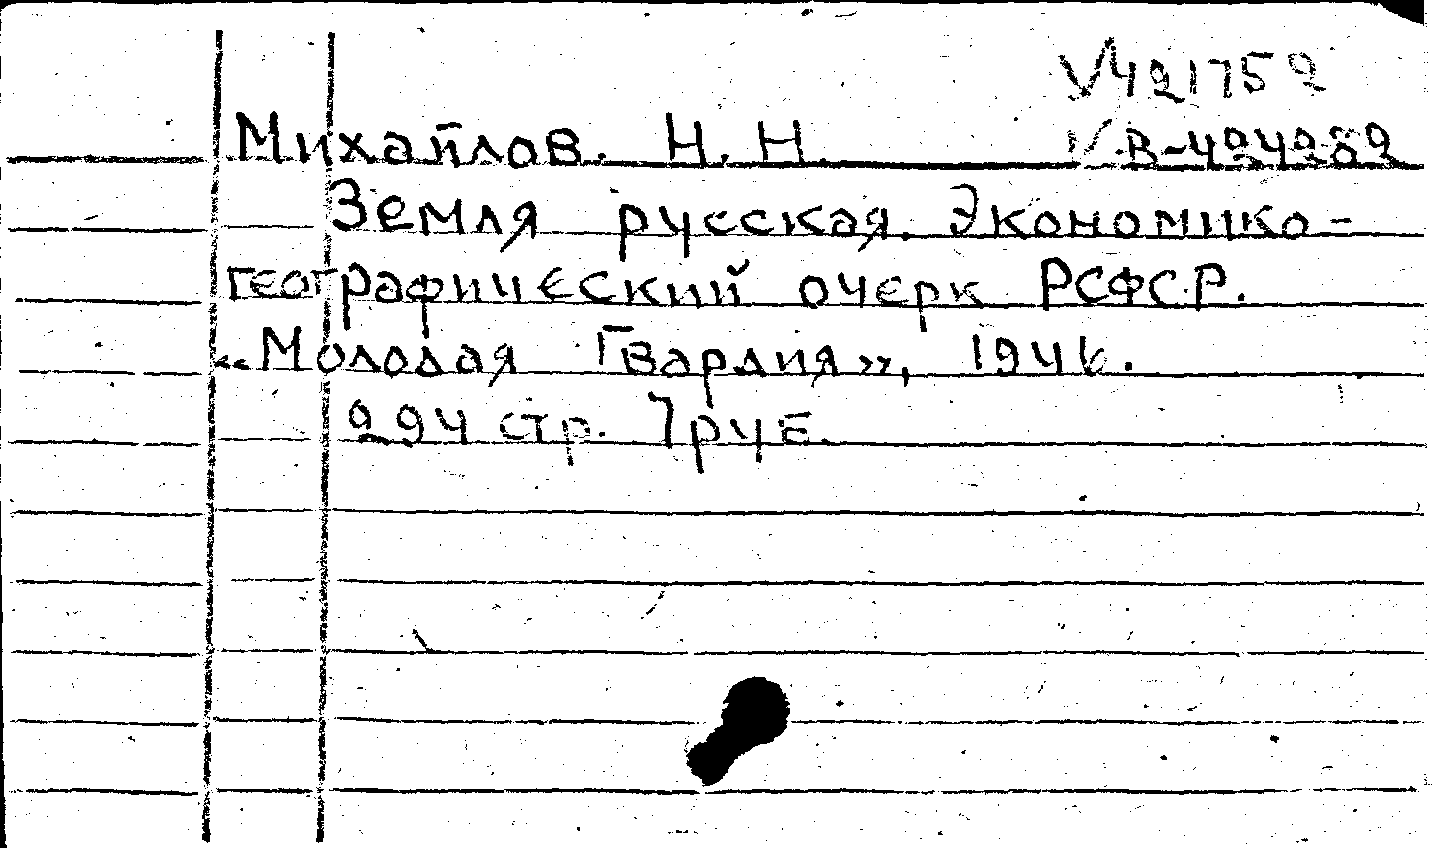 V421752
Михайлов. Н. Н. V B-424282
Земля русская. Экономико-
географический очерк РСФСР.
«Молодая Гвардия», 1946.
294 стр. 7 руб.